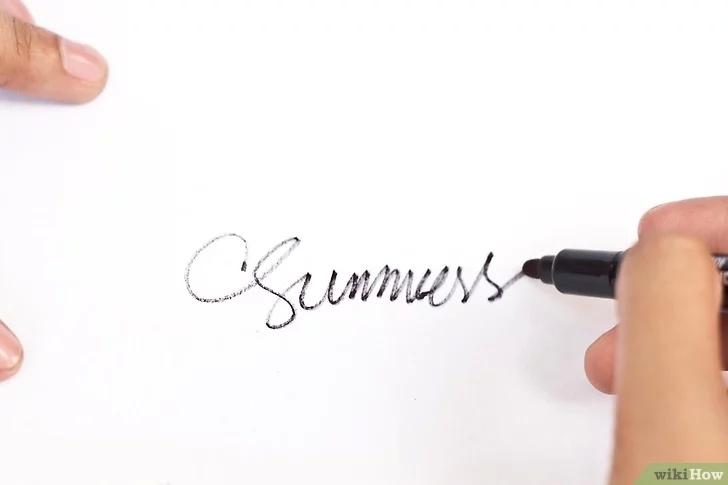 CSummers
wikiHow